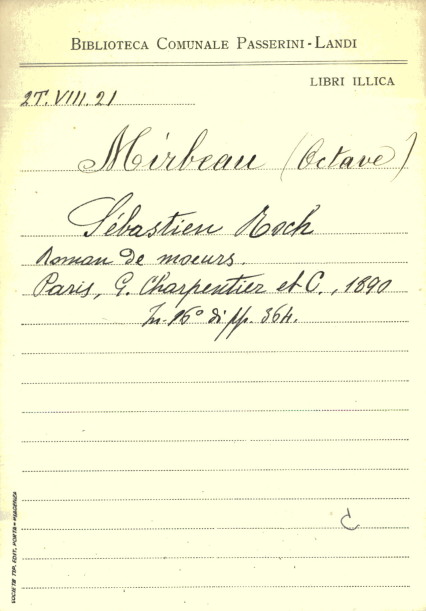 BIBLIOTECA COMUNALE PASSERINI-LANDI
LIBRI ILLICA
2T.VIII.21
Mirbeau (Octave)
Sébastien Roch
Roman de moeurs.
Paris, G. Charpentier et C., 1890
In-16° di pp. 364.
SOCIETÀ TIP. EDIT. PORTA - PIACENZA